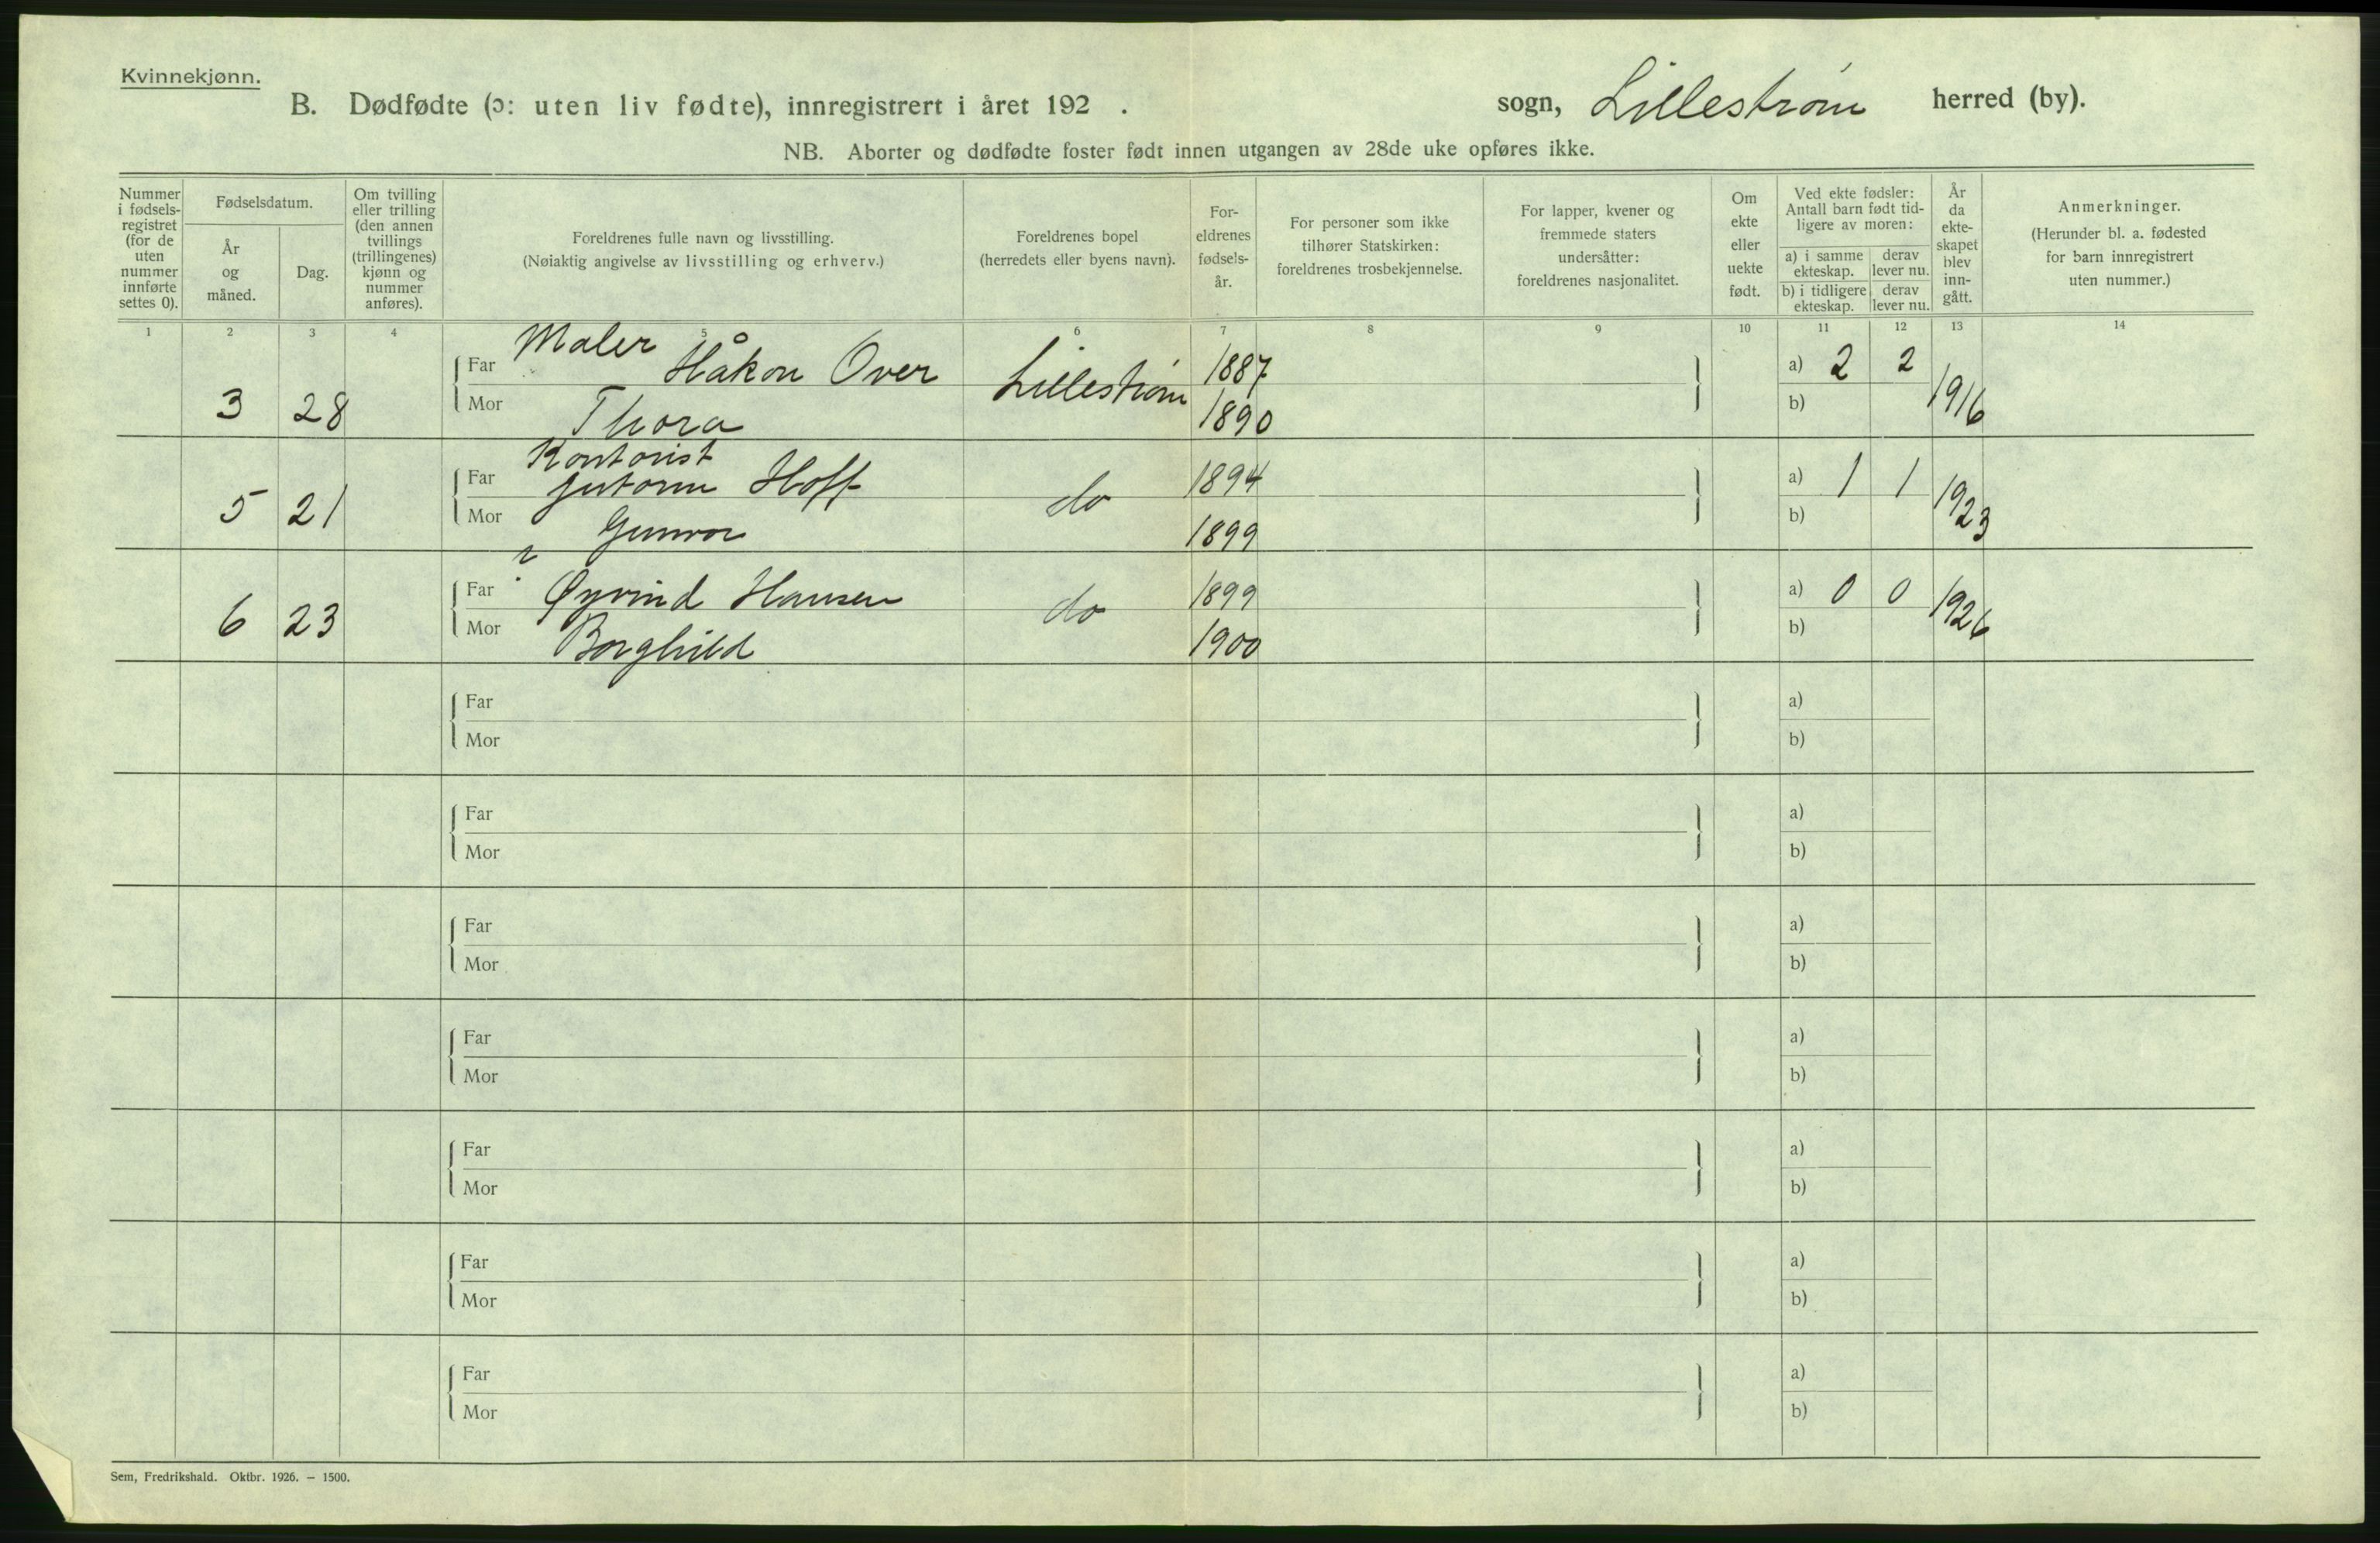 Kvinnekjønn.
B. Dødfødte (ɔ: uten liv fødte), innregistrert i året 192 . sogn, Lillestrøm herred (by).
NB. Aborter og dødfødte foster født innen utgangen av 28de uke opføres ikke.
Nummer i fødsels- registret (for de uten nummer innførte settes 0).
Fødselsdatum.
År og måned.
Dag.
Om tvilling eller trilling (den annen tvillings (trillingenes) kjønn og nummer anføres).
Foreldrenes fulle navn og livsstilling.
(Nøiaktig angivelse av livsstilling og erhverv.)
Foreldrenes bopel
(herredets eller byens navn).
For- eldrenes fødsels- år.
For personer som ikke tilhører Statskirken: foreldrenes trosbekjennelse.
For lapper, kvener og fremmede staters undersåtter: foreldrenes nasjonalitet.
Om ekte eller uekte født.
Ved ekte fødsler: Antall barn født tid- ligere av moren:
a) i samme ekteskap. derav lever nu.
b) i tidligere ekteskap. derav lever nu.
År da ekte- skapet blev inn- gått.
Anmerkninger.
(Herunder bl. a. fødested for barn innregistrert uten nummer.)
1 2 3 4 5 6 7 8 9 10 11 12 13 14
Maler
Far Håkon Over Lillestrøm 1887 a) 2 2
3 28 Mor Thora 1890 b) 1916
Kontorist
Far Hoff do 1894 a) 1 1
5 21 Mor Gunvor 1899 b) 1923
Far Øyvind Hansen do 1899 a) 0 0
6 23 Mor Borghild 1900 b) 1926
Far a)
Mor b)
Far a)
Mor b)
Far a)
Mor b)
Far a)
Mor b)
Far a)
Mor b)
Far a)
Mor b)
Far a)
Mor b)
Sem, Fredrikshald. Oktbr. 1926. — 1500.